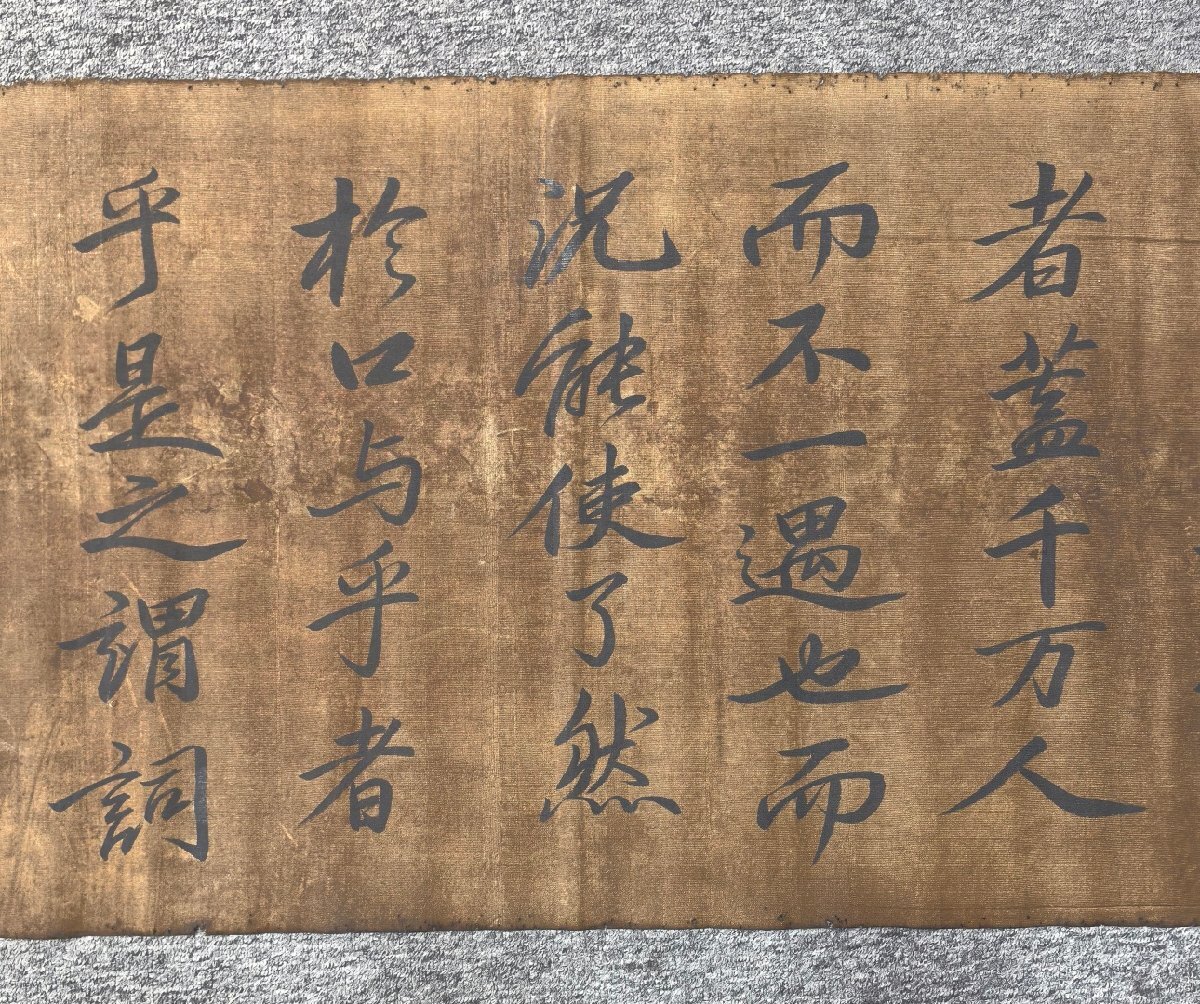 者蓋千万人
而不一遇也而
况能使了然
於口与乎者
乎是之謂詞